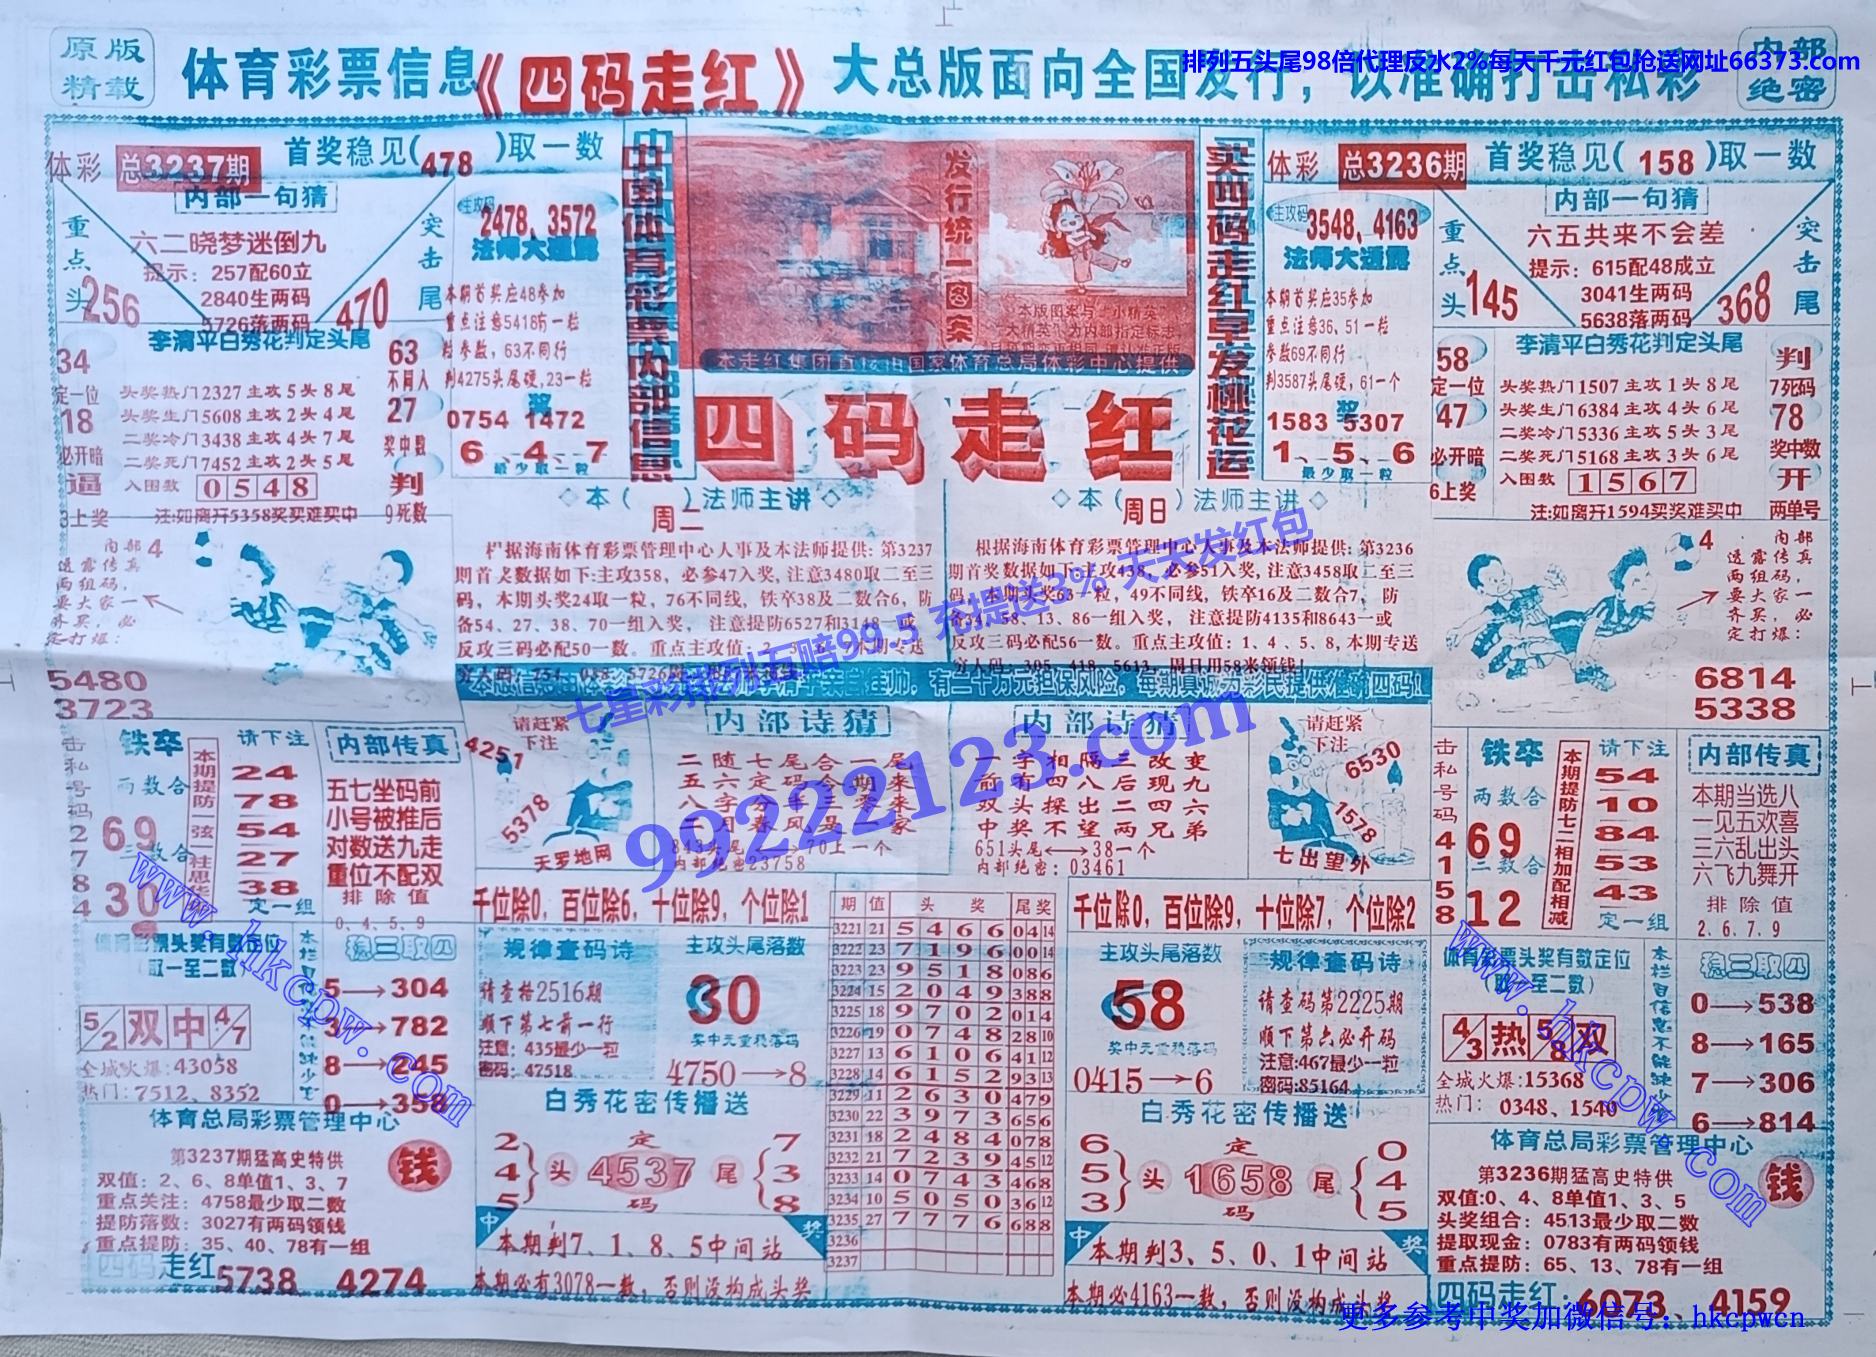 原版
精载
体育彩票信息《四码走红》大总版面向全国发行，以准确打击私彩
内部
绝密
排列五头尾98倍代理反水2%每天千元红包抢送网址66373.com
体彩 总3237期 首奖稳见(478)取一数
内部一句猜
重点头
256
六二晓梦迷倒九
提示：257配60立
2840生两码
5726落两码
突击尾
470
主攻码
2478、3572
法师大透露
本期首奖应48参加
粒参数，63不同行
判4275头尾硬,23一粒
奖
0754 1472
6、4、7
最少取一粒
李清平白秀花判定头尾
34
定一位
18
必开暗
逼
3上奖
头奖热门2327主攻5头8尾
头奖生门5608主攻2头4尾
二奖冷门3438主攻4头7尾
二奖死门7452主攻2头5尾
入围数 0548
注:如离开5358奖买难买中
63
不同人
27
奖中数
判
9死数
中国体育彩票内部信息
发行统一图案
本版图案与“小精英”
大精英”为内部指定标志
本走红集团直接由国家体育总局体彩中心提供
四码走红
买四码走红早发桃花运
体彩 总3236期 首奖稳见(158)取一数
内部一句猜
重点头
145
六五共来不会差
提示：615配48成立
3041生两码
5638落两码
突击尾
368
主攻码
3548、4163
法师大透露
本期首奖应35参加
重点注意36、51一粒
参数69不同行
判3587头尾硬，61一个
奖
1583 5307
1、5、6
最少取一粒
李清平白秀花判定头尾
58
定一位
47
必开暗
6上奖
头奖热门1507主攻1头8尾
头奖生门6384主攻4头6尾
二奖冷门5336主攻5头3尾
二奖死门5168主攻3头6尾
入围数 1567
注:如离开1594买奖难买中
判
7死码
78
奖中数
开
两单号
◇本(周二)法师主讲◇
根据海南体育彩票管理中心人事及本法师提供: 第3237
期首奖数据如下:主攻358，必参47入奖, 注意3480取二至三
码，本期头奖24取一粒，76不同线，铁卒38及二数合6，防
备54、27、38、70一组入奖， 注意提防6527和3148一或
◇本(周日)法师主讲◇
根据海南体育彩票管理中心人事及本法师提供: 第3236
期首奖数据如下:主攻438，必参51入奖, 注意3458取二至三
码，本期头奖63一粒，49不同线，铁卒16及二数合7，防
备34、58、13、86一组入奖， 注意提防4135和8643一或
反攻三码必配56一数。重点主攻值：1、4、5、8, 本期专送
穷人码：305、418、5613，周日用58来领钱！
内部 4
透露传真
两组码，
要大家一
齐买，必
定打爆：
5480
3723
4 内部
透露传真
两组码，
要大家一
齐买，必
定打爆：
6814
5338
七星彩排列五赔99.5 充提送3% 天天发红包
99222123.com
击私号码27884
铁卒
两数合
69
二数合
30
本期提防一弦一柱思华年
请下注
24
78
54
27
38
定一组
内部传真
五七坐码前
小号被推后
对数送九走
重位不配双
排除值
0、4、5、9
请赶紧
下注
4251
5378
天罗地网
内部诗猜
二随七尾合一尾
五六定码今期来
843头尾←→70上一个
内部绝密23758
内部诗猜
一字相隔三改变
前有四八后现九
双头探出二四六
中奖不望两兄弟
651头尾←→38一个
内部绝密：03461
请赶紧
下注
6530
1578
七出望外
击私号码44158
铁卒
两数合
69
二数合
12
本期提防七二相加配相减
请下注
54
10
84
53
43
定一组
内部传真
本期当选八
一见五欢喜
三六乱出头
六飞九舞开
排除值
2、6、7、9
千位除0，百位除6，十位除9，个位除1
千位除0，百位除9，十位除7，个位除2
体育彩票头奖有数定位
（取一至二数）
5/2 双 中 4/7
全城火爆:43058
热门: 7512、8352
稳三取四
5→304
3→782
8→245
0→358
规律查码诗
请查格2516期
顺下第七前一行
注意：435最少一粒
密码：47518
主攻头尾落数
30
奖中无重税落码
4750→8
期 值 头奖 尾奖
3221 21 5466 04 14
3222 23 7196 00 14
3223 23 9518 08 6
3224 15 2049 38 8
3225 18 9702 01 4
3226 19 0748 28 10
3227 13 6106 41 12
3228 14 6152 93 13
3229 11 2630 47 9
3230 22 3973 65 6
3231 18 2484 07 8
3232 21 7239 45 12
3233 14 0743 46 8
3234 10 5050 36 12
3235 27 7776 68 8
3236
3237
主攻头尾落数
58
奖中无重税落码
0415→6
规律查码诗
请查码第2225期
顺下第六必开码
注意:467最少一粒
密码:85164
体育彩票头奖有数定位
（取一至二数）
4/3 热 5/8 双
全城火爆:15368
热门: 0348、1540
本栏目信息不能缺少
稳三取四
0→538
8→165
7→306
6→814
体育总局彩票管理中心
第3237期猛高史特供
钱
双值：2、6、8单值1、3、7
重点关注：4758最少取二数
提防落数：3027有两码领钱
重点提防：35、40、78有一组
四码走红 5738 4274
白秀花密传播送
2
4
5
头
定
4537
码
尾
7
3
8
中 奖
本期判7、1、8、5中间站
本期必有3078一数，否则没构成头奖
白秀花密传播送
6
5
3
头
定
1658
码
尾
0
4
5
中 奖
本期判3、5、0、1中间站
本期必4163一数，否则没构成头奖
体育总局彩票管理中心
第3236期猛高史特供
钱
双值:0、4、8单值1、3、5
头奖组合：4513最少取二数
提取现金：0783有两码领钱
重点提防：65、13、78有一组
四码走红：6073、4159
www.hkcpw.com
www.hkcpw.com
更多参考中奖加微信号：hkcpwcn